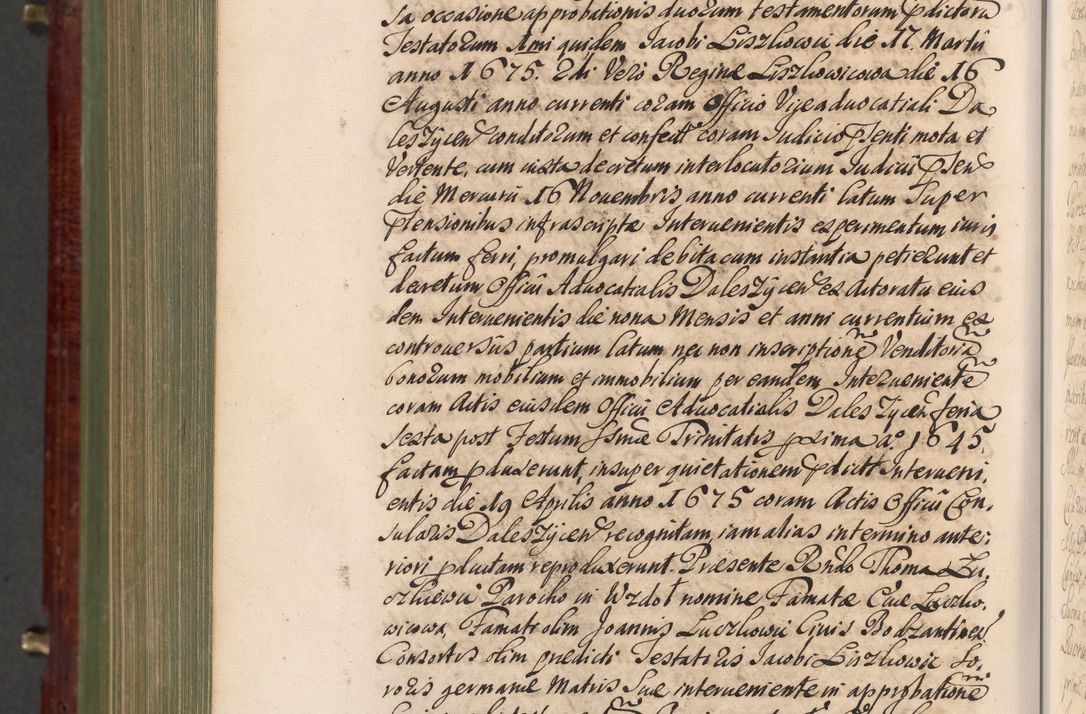 sa occasione approbationis duorum testamentorum pdictorũ
Testatorum Imi quidem Jacobi Liszkowic die 17. Martii
anno 1675. 2di Vero Reginæ Liszkowicowa die 16
Augusti anno currenti coram Officio Viceadvocatiali Da
leszycen conditorum et confect coram Judicio psenti mota et
Vertente, cum iuxta decretum interlocutorium Judicii psen
die Mercurii 16 Nouembris anno currenti latum super
ptensionibus infrascriptæ Interuenientis experimentum iuris
factum ferri, promulgari debita cum instantia petierunt et
decretum Officii Aduocatialis Daleszycen ex actoratu eius
dem Interuenientis die nona Mensis et anni currentium ex
controuersiis partium latum nec non inscriptionẽ Venditoriã
bonorum mobilium et immobilium per eandem Interuenientẽ
coram Actis eiusdem Officii Aduocatialis Daleszycen feria
sexta post Festum Ssmæ Trinitatis proxima aº 1645.
factam pduxerunt, insuper quietationem pdictæ Interueni,
entis die 19 Aprilis anno 1675 coram Actis Officii Con,
sularis Daleszycen recognitam, iam alias in termino ante,
riori pductam reproduxerunt. Præsente Rndo Thoma Lu,
czkiewic Parocho in Wzdoł nomine Famatæ Ewæ Luczko,
wicowa, Famati olim Joannis Luczkowic Ciuis Bodzantinen
Consortis olim prædicti Testatoris Jacobi Liszkowic So,
roris germanæ Matris suæ interueniente in approbationẽ